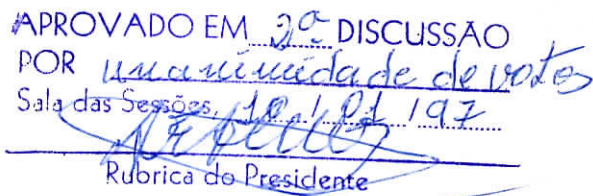 APROVADO EM 2ª DISCUSSÃO
POR unanimidade de votos
Sala das Sessões, 10 / 01 / 197
Rubrica do Presidente